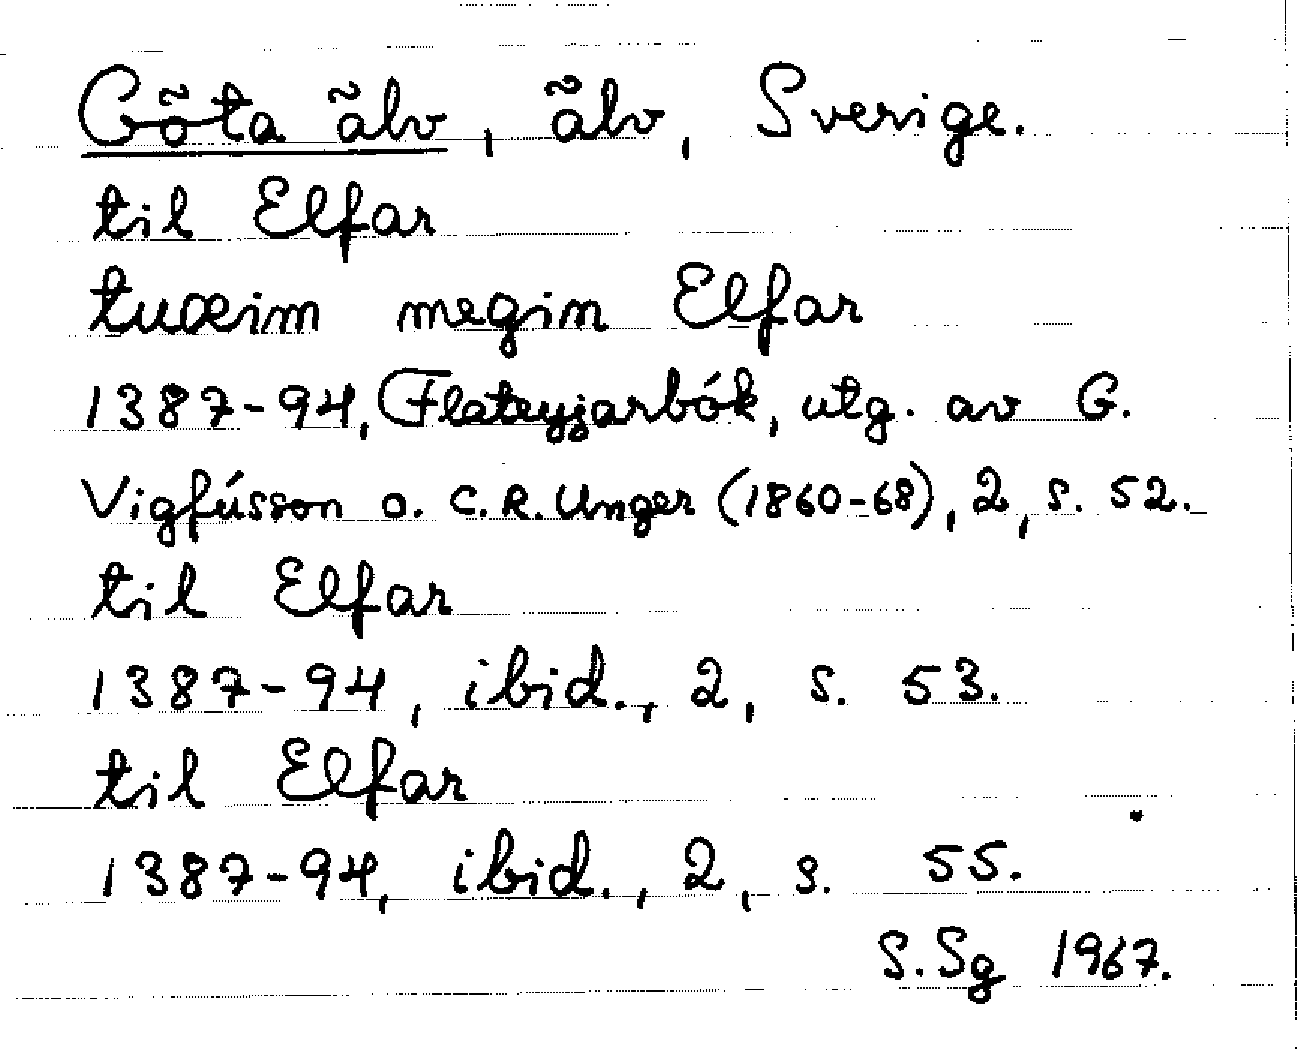 Göta älv, älv, Sverige.
til Elfar
tuæim megin Elfar
1387-94, Flateyjarbók, utg. av G.
Vigfússon o. C.R. Unger (1860-68), 2, s. 52.
til Elfar
1387-94, ibid., 2, s. 53.
til Elfar
1387-94, ibid., 2, s. 55.
S.Sg 1967.